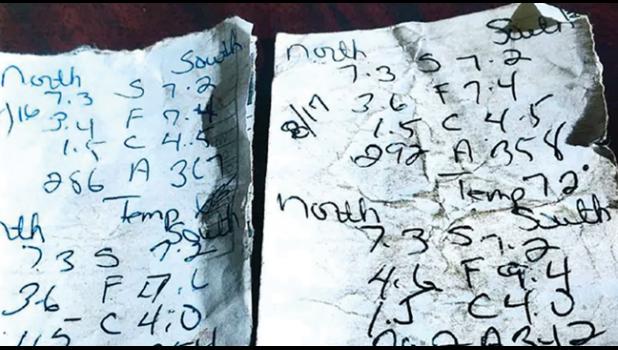 North South
7.3 S 7.2
/16 3.4 F 7.4
1.5 C 4.5
286 A 367
Temp
South
7.3 S 7.2
3.6 F
C 4.0
North South
7.3 S 7.2
8/17 3.6 F 7.4
1.5 C 4.5
292 A 358
Temp 72°
North South
7.3 S 7.2
4.6 F 9.4
1.5 C 4.0
A 342